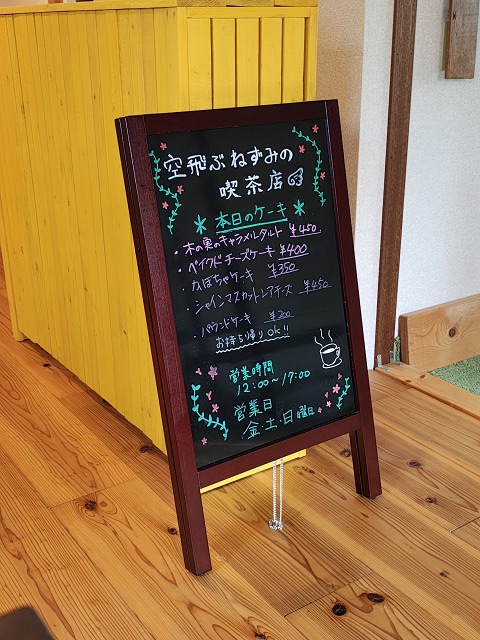 空飛ぶねずみの
喫茶店
本日のケーキ
・木の実のキャラメルタルト ¥450
・ベイクドチーズケーキ ¥400
・かぼちゃケーキ ¥350
・シャインマスカットレアチーズ ¥450
・パウンドケーキ ¥200
お持ち帰りOK!!
営業時間
12:00~17:00
営業日
金・土・日曜日